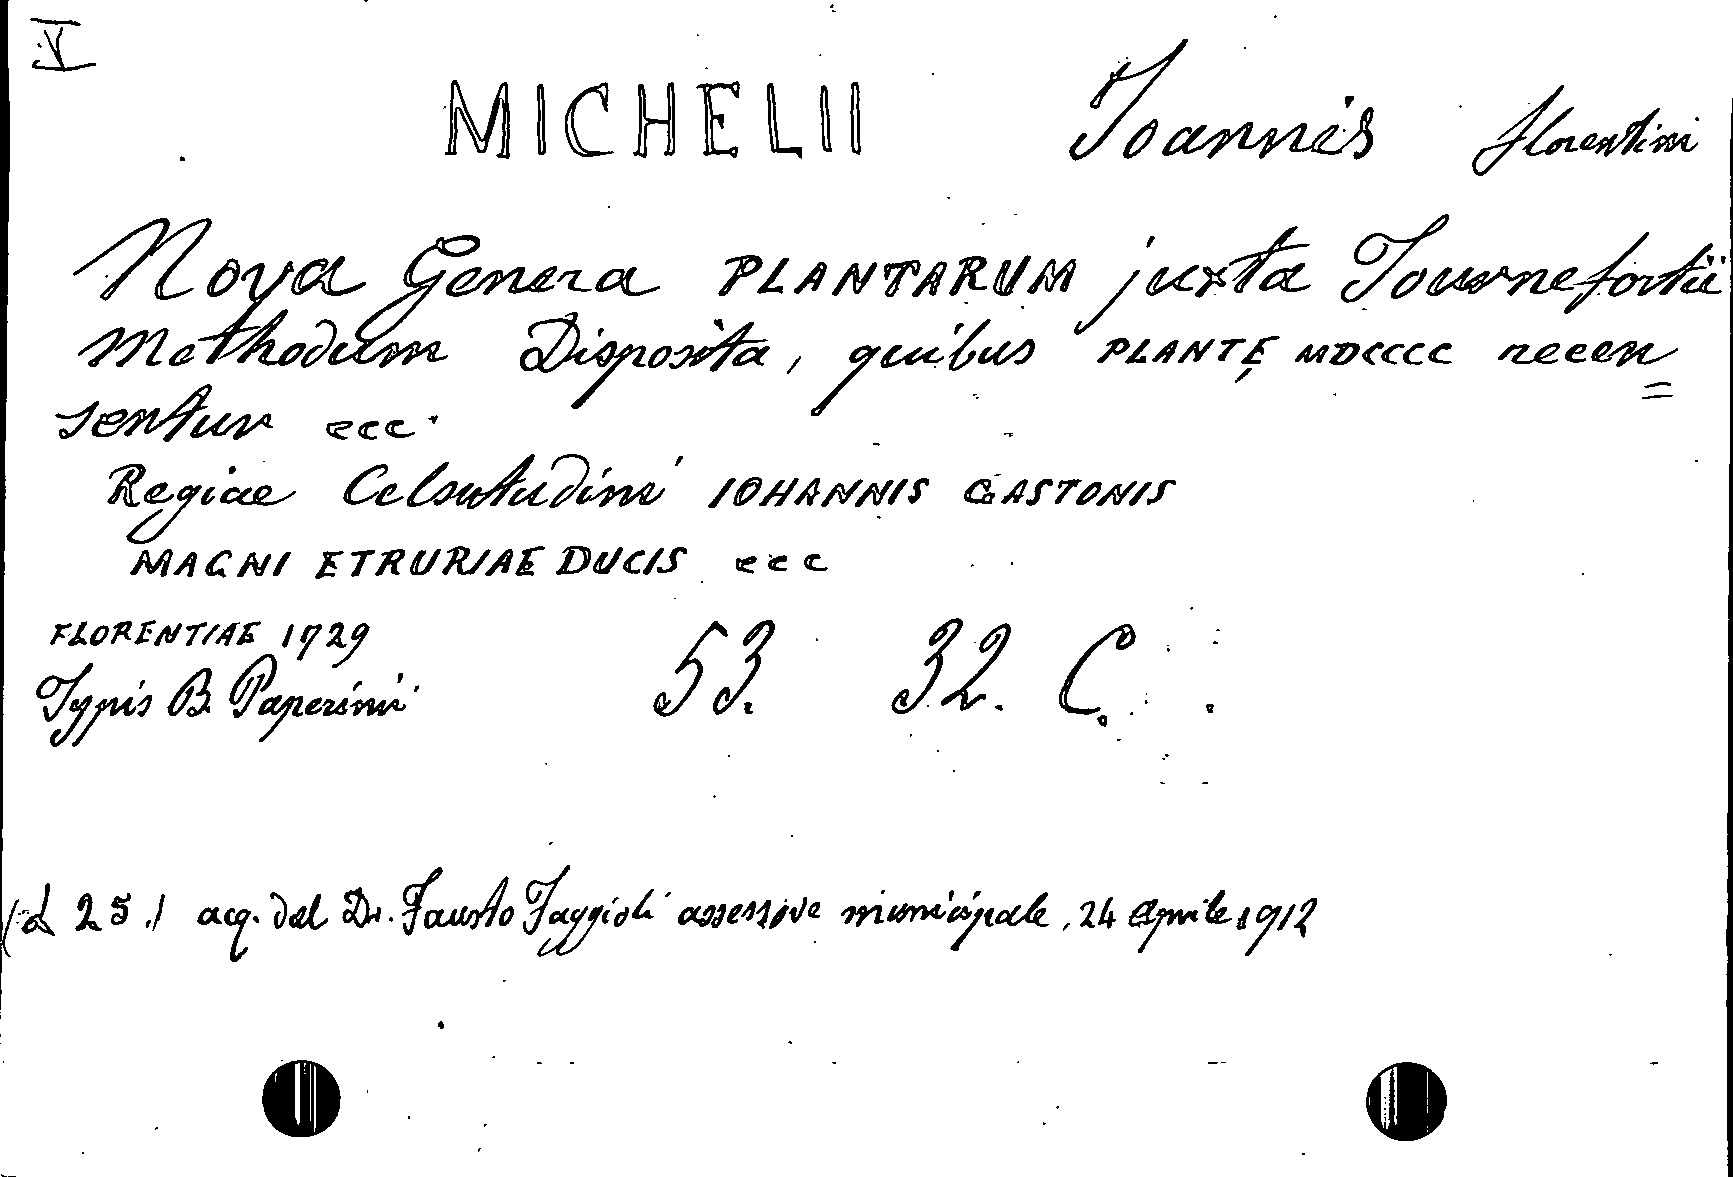 V
MICHELII Ioannis florentini
Nova Genera PLANTARUM juxta Tournefortii
Methodum Disposita, quibus PLANTĘ MDCCCC recen=
sentur ecc.
Regiae Celsitudini IOHANNIS GASTONIS
MAGNI ETRURIAE DUCIS ecc
FLORENTIAE 1729
Typis B. Paperinii 53. 32. C.
(£ 25.) acq. dal Dr. Fausto Faggioli assessore municipale, 24 Aprile 1912